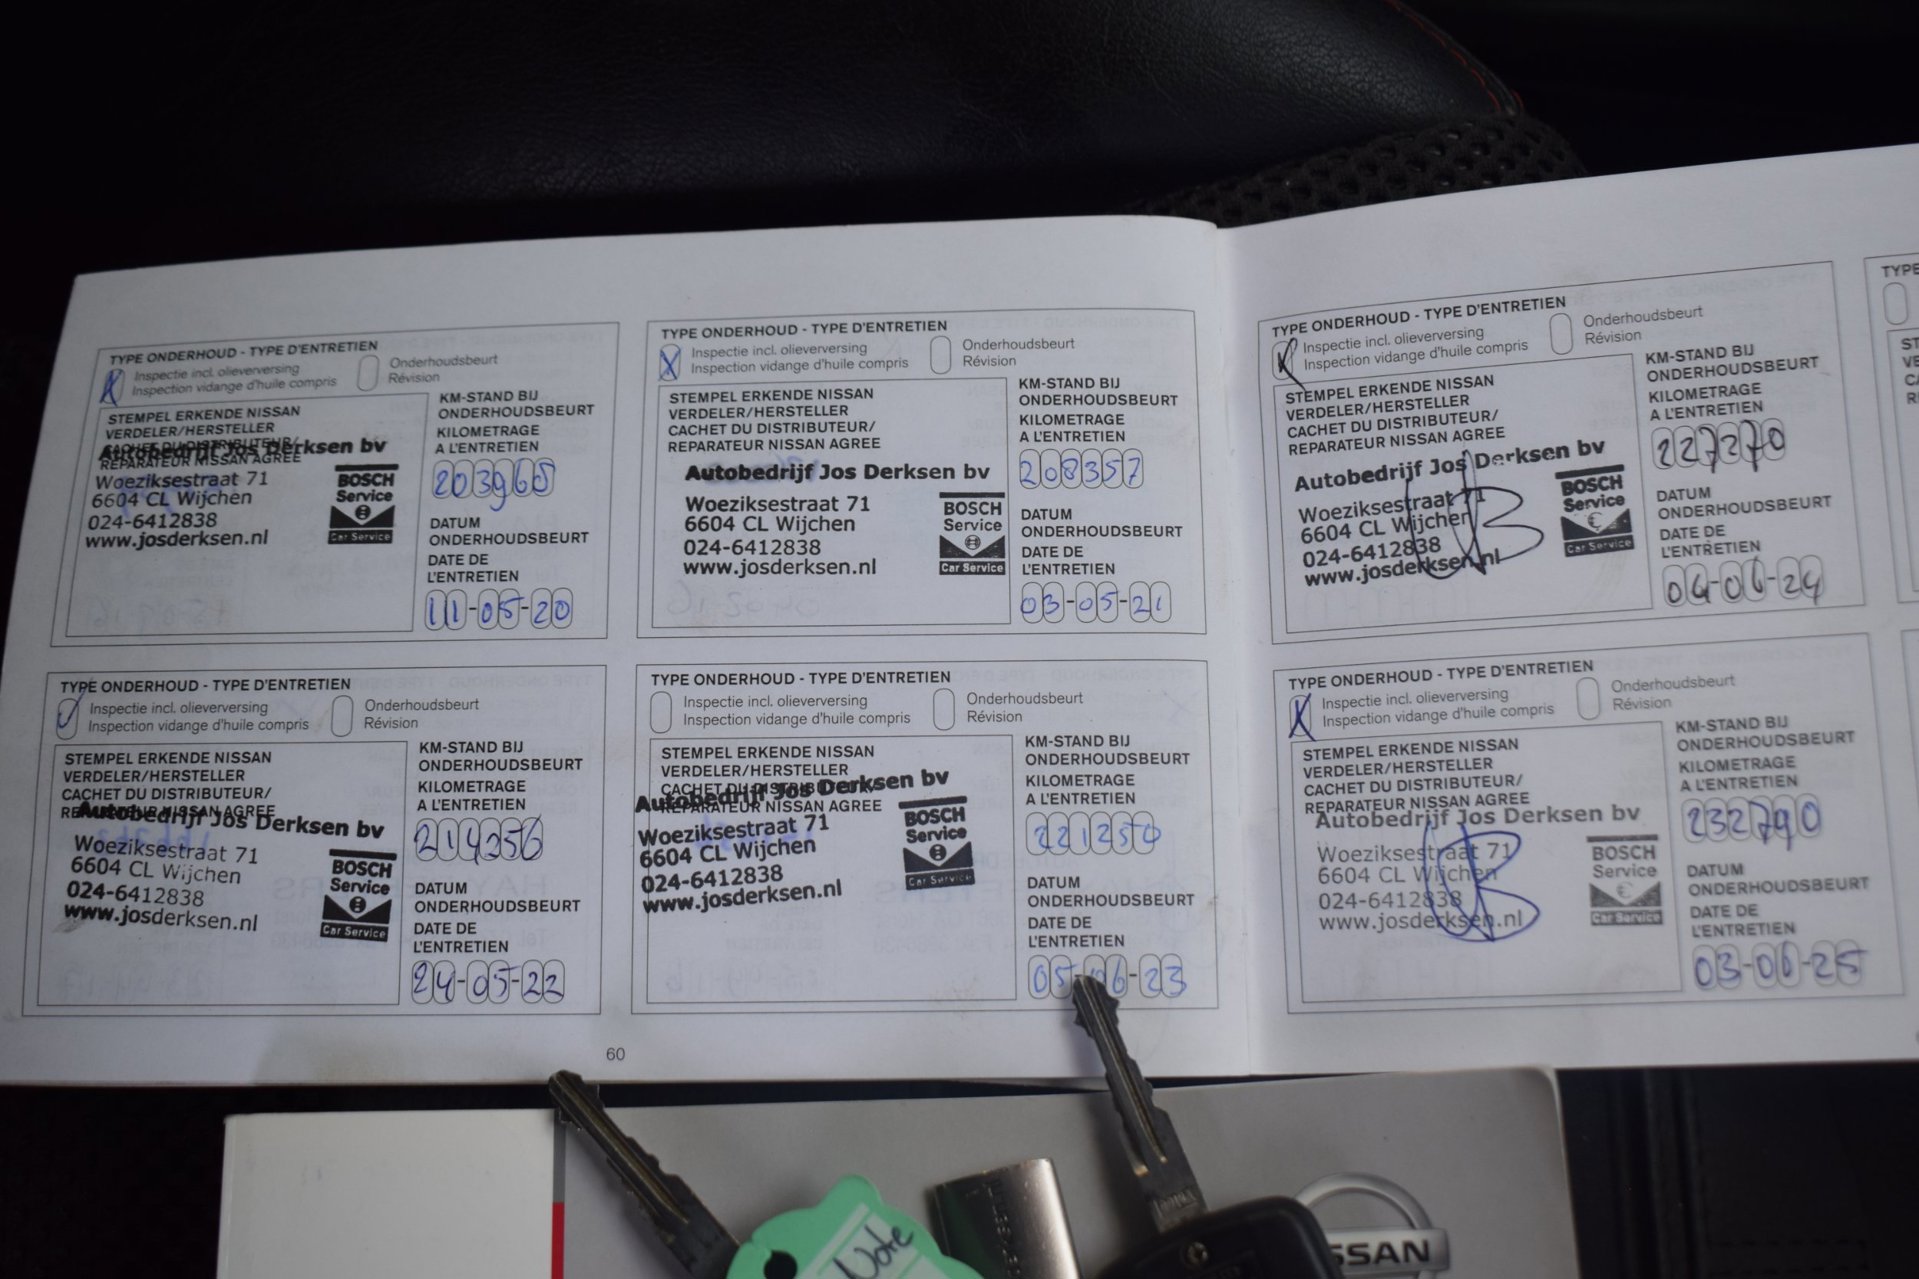 TYPE ONDERHOUD - TYPE D'ENTRETIEN
Inspectie incl. olieverversing
Inspection vidange d'huile compris
Onderhoudsbeurt
Révision
STEMPEL ERKENDE NISSAN
VERDELER/HERSTELLER
CACHET DU DISTRIBUTEUR/
REPARATEUR NISSAN AGREE
Autobedrijf Jos Derksen bv
Woeziksestraat 71
6604 CL Wijchen
024-6412838
www.josderksen.nl
BOSCH
Service
Car Service
KM-STAND BIJ
ONDERHOUDSBEURT
KILOMETRAGE
A L'ENTRETIEN
203965
DATUM
ONDERHOUDSBEURT
DATE DE
L'ENTRETIEN
11-05-20
TYPE ONDERHOUD - TYPE D'ENTRETIEN
Inspectie incl. olieverversing
Inspection vidange d'huile compris
Onderhoudsbeurt
Révision
STEMPEL ERKENDE NISSAN
VERDELER/HERSTELLER
CACHET DU DISTRIBUTEUR/
REPARATEUR NISSAN AGREE
Autobedrijf Jos Derksen bv
Woeziksestraat 71
6604 CL Wijchen
024-6412838
www.josderksen.nl
BOSCH
Service
Car Service
KM-STAND BIJ
ONDERHOUDSBEURT
KILOMETRAGE
A L'ENTRETIEN
208357
DATUM
ONDERHOUDSBEURT
DATE DE
L'ENTRETIEN
03-05-21
TYPE ONDERHOUD - TYPE D'ENTRETIEN
Inspectie incl. olieverversing
Inspection vidange d'huile compris
Onderhoudsbeurt
Révision
STEMPEL ERKENDE NISSAN
VERDELER/HERSTELLER
CACHET DU DISTRIBUTEUR/
REPARATEUR NISSAN AGREE
Autobedrijf Jos Derksen bv
Woeziksestraat 71
6604 CL Wijchen
024-6412838
www.josderksen.nl
BOSCH
Service
Car Service
KM-STAND BIJ
ONDERHOUDSBEURT
KILOMETRAGE
A L'ENTRETIEN
227270
DATUM
ONDERHOUDSBEURT
DATE DE
L'ENTRETIEN
04-06-24
TYPE ONDERHOUD - TYPE D'ENTRETIEN
Inspectie incl. olieverversing
Inspection vidange d'huile compris
Onderhoudsbeurt
Révision
STEMPEL ERKENDE NISSAN
VERDELER/HERSTELLER
CACHET DU DISTRIBUTEUR/
REPARATEUR NISSAN AGREE
Autobedrijf Jos Derksen bv
Woeziksestraat 71
6604 CL Wijchen
024-6412838
www.josderksen.nl
BOSCH
Service
Car Service
KM-STAND BIJ
ONDERHOUDSBEURT
KILOMETRAGE
A L'ENTRETIEN
214356
DATUM
ONDERHOUDSBEURT
DATE DE
L'ENTRETIEN
24-05-22
TYPE ONDERHOUD - TYPE D'ENTRETIEN
Inspectie incl. olieverversing
Inspection vidange d'huile compris
Onderhoudsbeurt
Révision
STEMPEL ERKENDE NISSAN
VERDELER/HERSTELLER
CACHET DU DISTRIBUTEUR/
REPARATEUR NISSAN AGREE
Autobedrijf Jos Derksen bv
Woeziksestraat 71
6604 CL Wijchen
024-6412838
www.josderksen.nl
BOSCH
Service
Car Service
KM-STAND BIJ
ONDERHOUDSBEURT
KILOMETRAGE
A L'ENTRETIEN
221250
DATUM
ONDERHOUDSBEURT
DATE DE
L'ENTRETIEN
05-06-23
TYPE ONDERHOUD - TYPE D'ENTRETIEN
Inspectie incl. olieverversing
Inspection vidange d'huile compris
Onderhoudsbeurt
Révision
STEMPEL ERKENDE NISSAN
VERDELER/HERSTELLER
CACHET DU DISTRIBUTEUR/
REPARATEUR NISSAN AGREE
Autobedrijf Jos Derksen bv
Woeziksestraat 71
6604 CL Wijchen
024-6412838
www.josderksen.nl
BOSCH
Service
Car Service
KM-STAND BIJ
ONDERHOUDSBEURT
KILOMETRAGE
A L'ENTRETIEN
232790
DATUM
ONDERHOUDSBEURT
DATE DE
L'ENTRETIEN
03-06-25
60
Note
SSAN